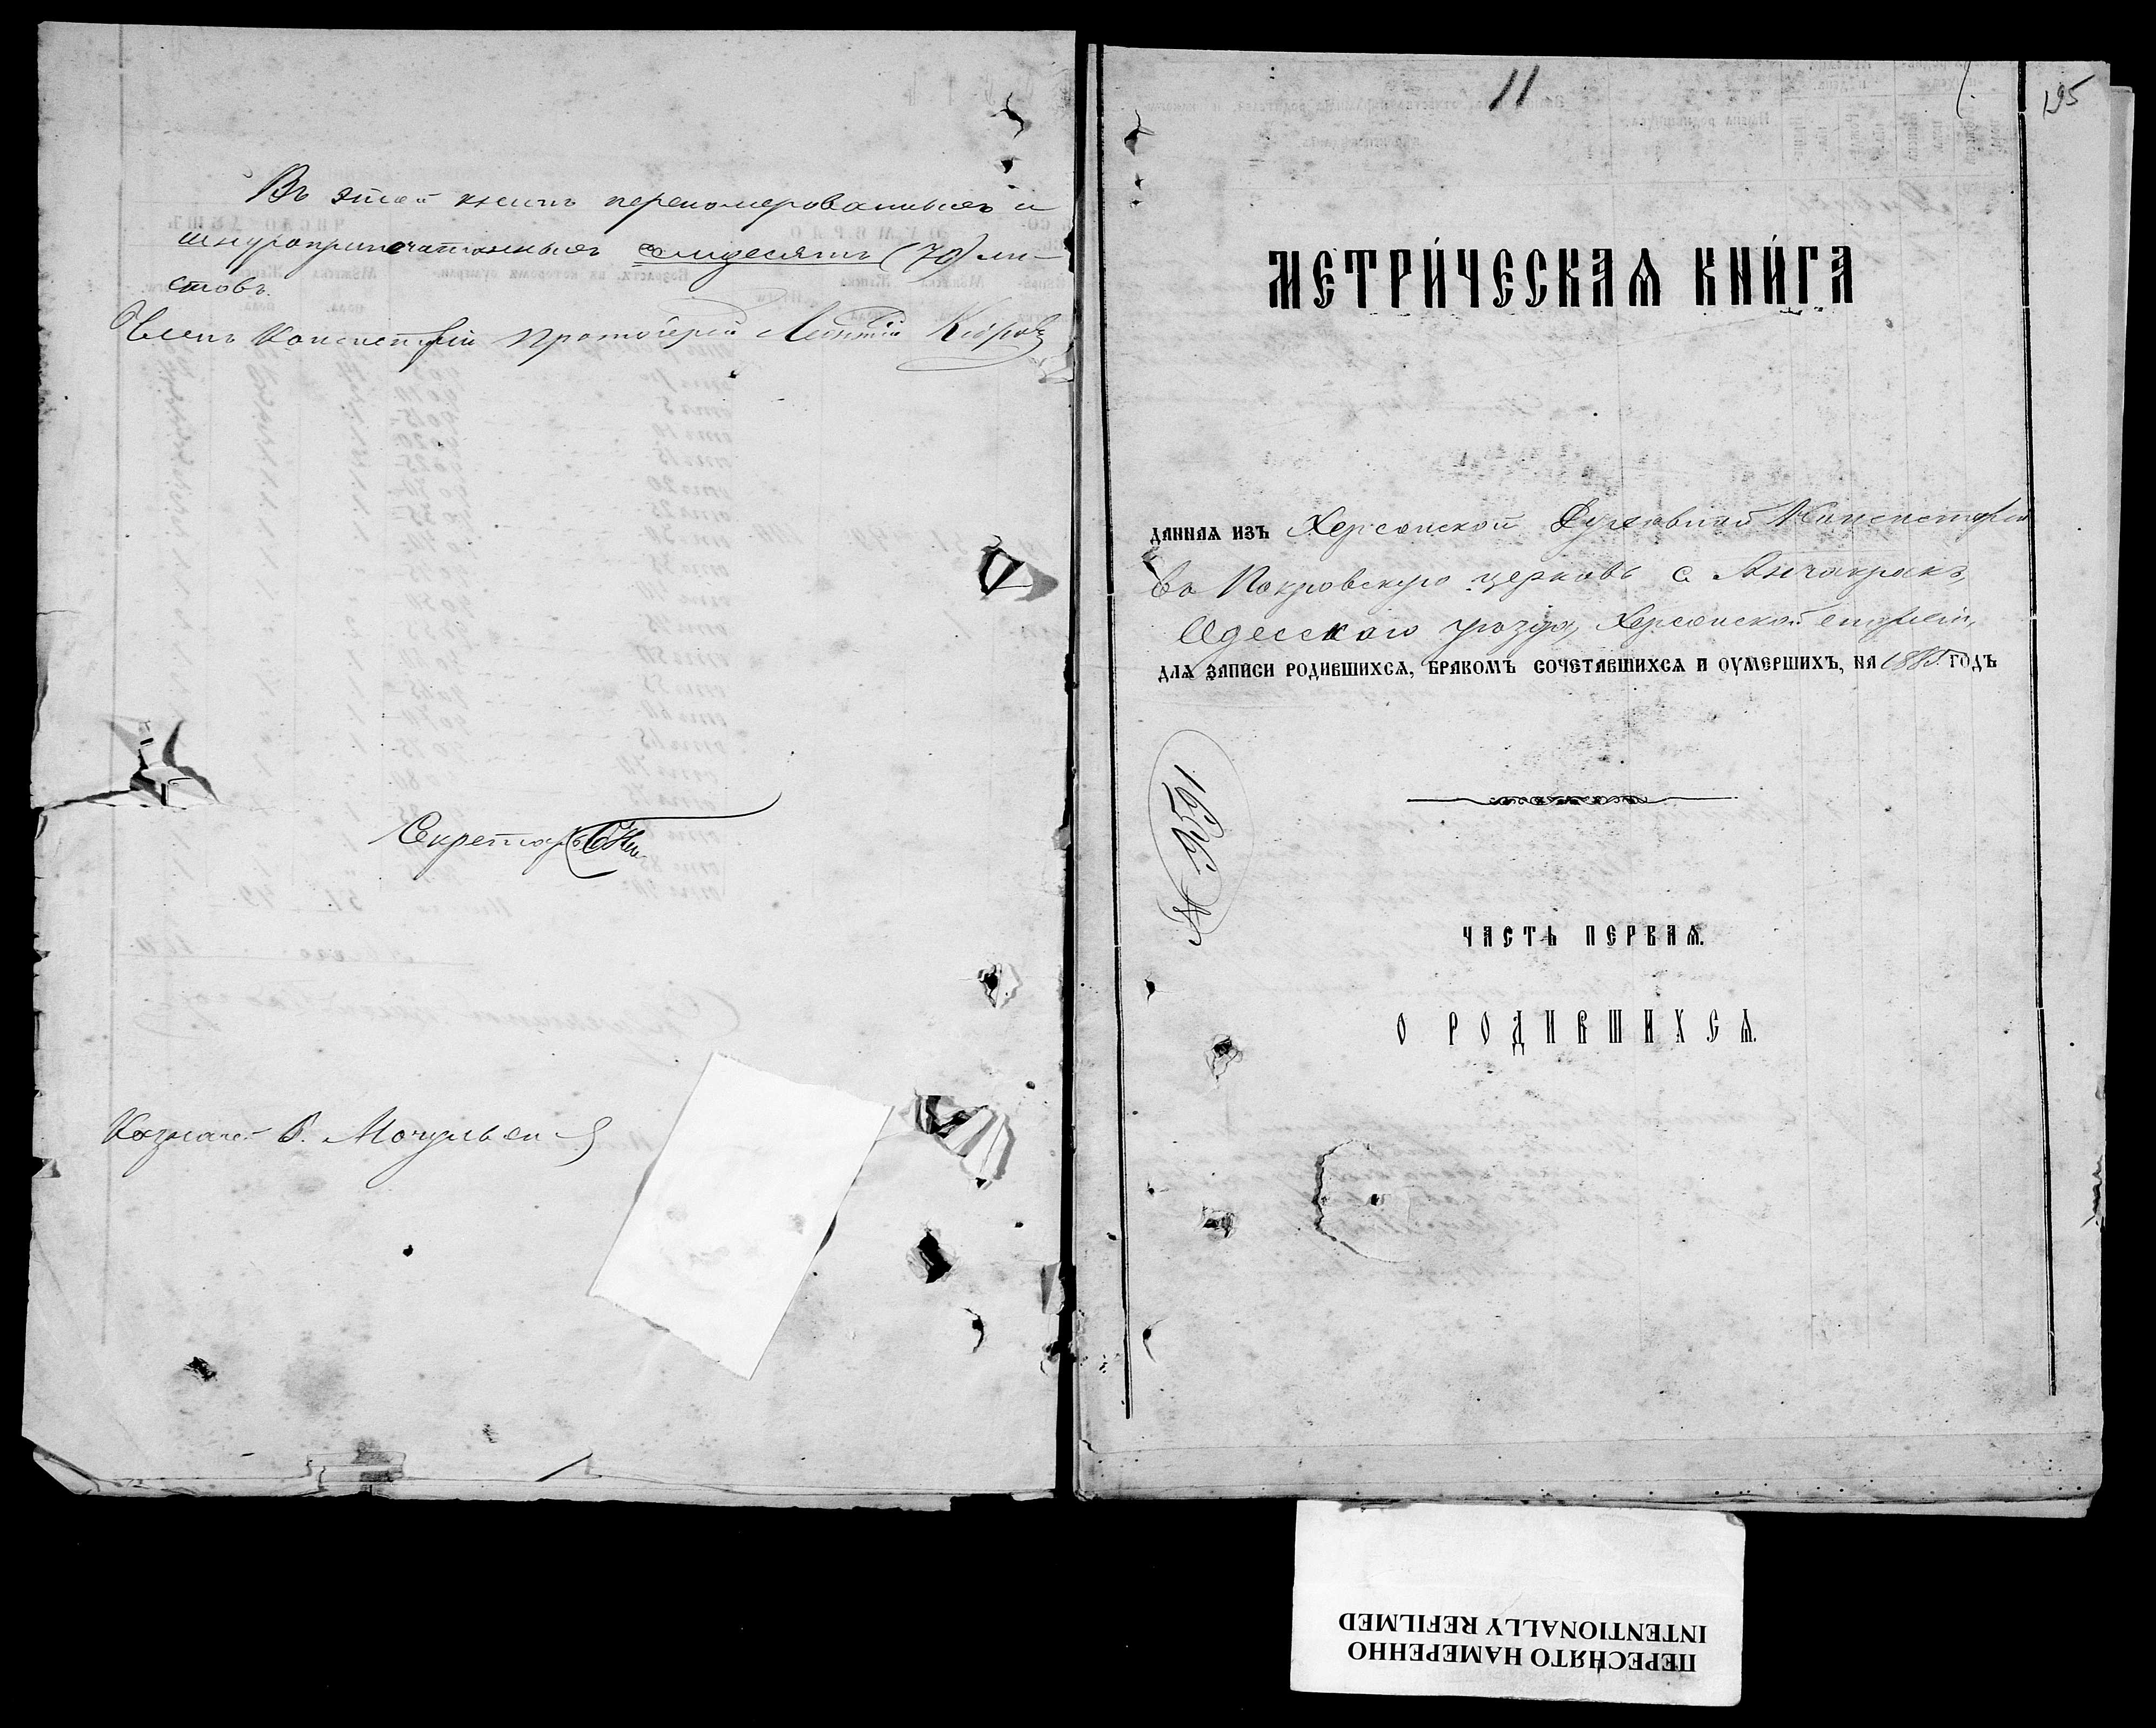 Въ этой книгѣ перенумерованныхъ и
шнуроприпечатанныхъ семдесятъ (70) ли-
стовъ.
Членъ Консисторіи Протоіерей
Секретарь
Казначей В. Мочульскій
11
195
МЕТРИ́ЧЕСКАѦ КНИ́ГА
ДАННАѦ ИЗЪ Херсонской Духовной Консисторіи
въ Покровскую церковь с. Анчакракъ,
Одесскаго уѣзда, Херсонской епархіи,
ДЛѦ ЗАПИСИ РОДИВШИХСѦ, БРАКОМЪ СОЧЕТАВШИХСѦ И ОУМЕРШИХЪ, НА 1885. ГОДЪ
№ 9591
ЧАСТЬ ПЕРВАѦ.
О РОДИВШИХСѦ.
ПЕРЕСНЯТО НАМЕРЕННО
INTENTIONALLY REFILMED